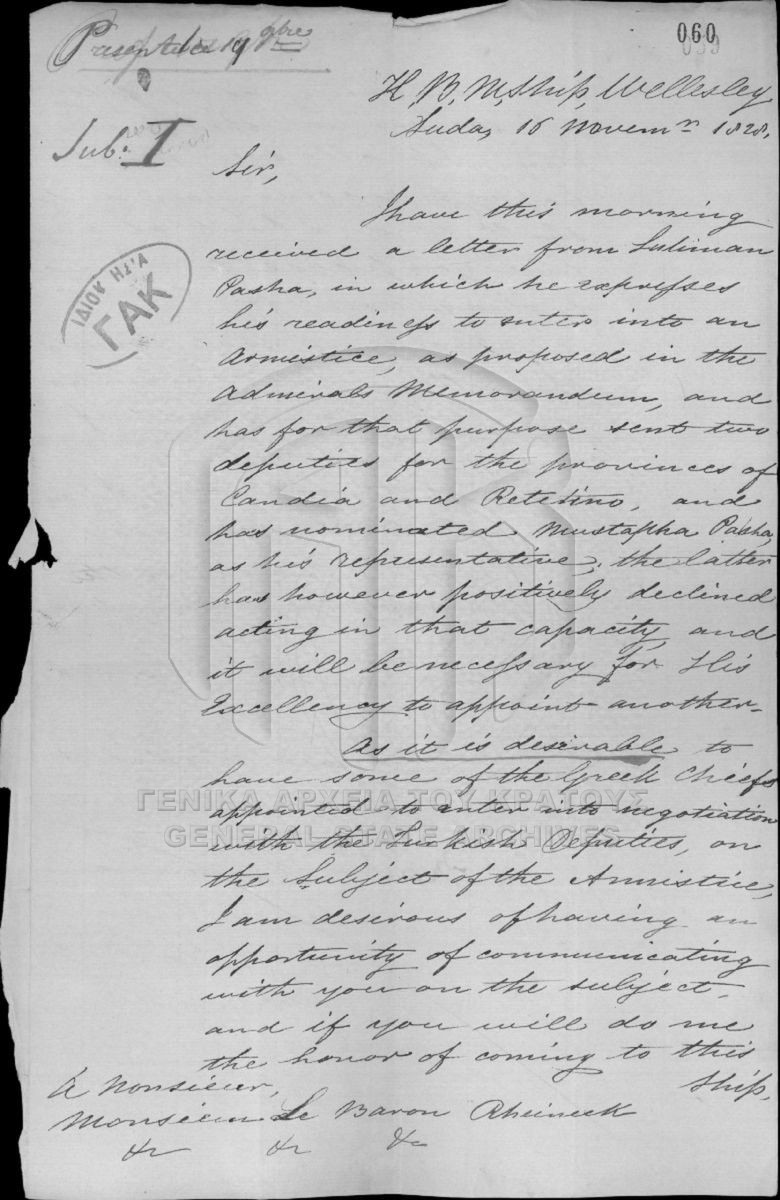 060
H. B. M. Ship, Wellesley
Suda, 16 Novemr 1828.
Sub. I
Sir,
I have this morning
received a letter from Suliman
Pasha, in which he expresses
his readiness to enter into an
Armistice, as proposed in the
Admirals Memorandum, and
has for that purpose sent two
deputies for the provinces of
Candia and Retimo, and
has nominated Mustapha Pasha,
as his representative; the latter
has however positively declined
acting in that capacity, and
it will be necessary for His
Excellency to appoint another.
As it is desirable to
have some of the Greek Chiefs
appointed to enter into negotiation
with the Turkish Deputies, on
the Subject of the Armistice,
I am desirous of having an
opportunity of communicating
with you on the subject,
and if you will do me
the honor of coming to this
Ship,
A Monsieur,
Monsieur Le Baron Rheineck
&c &c &c
ΓΑΚ
ΓΕΝΙΚΑ ΑΡΧΕΙΑ ΤΟΥ ΚΡΑΤΟΥΣ
GENERAL STATE ARCHIVES